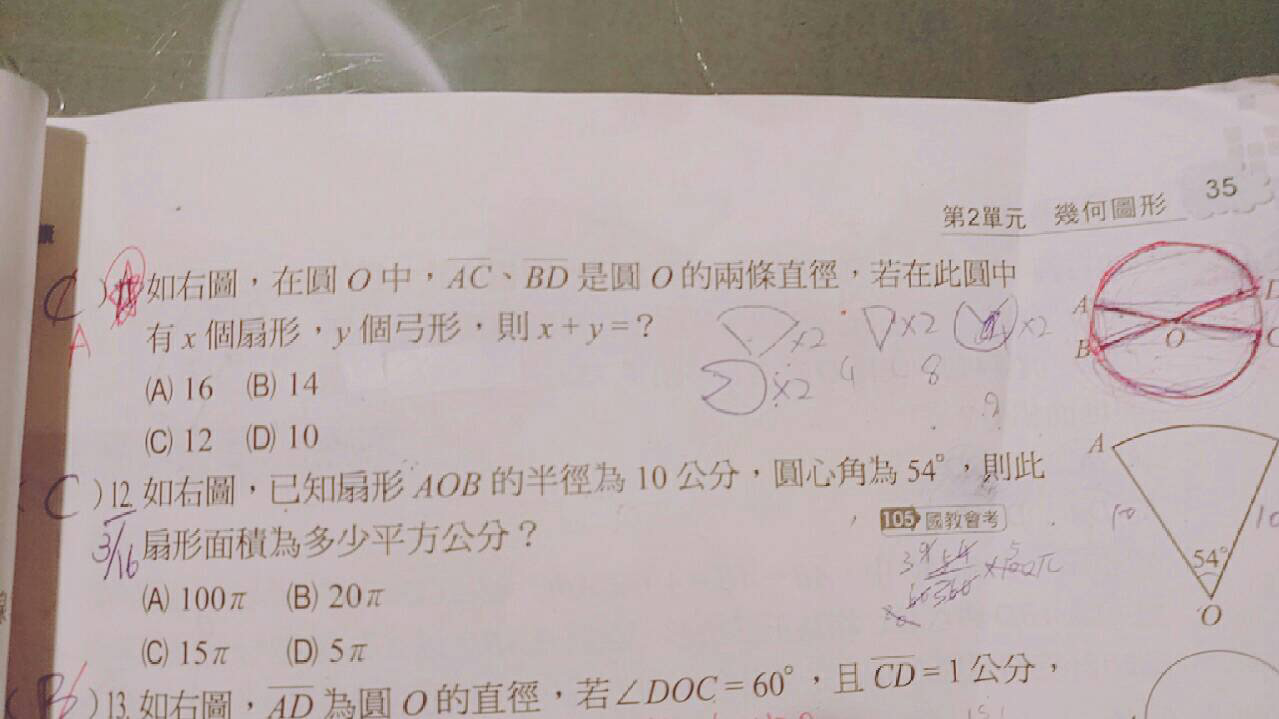 35
第2單元 幾何圖形
C ) 如右圖，在圓 O 中，AC、BD 是圓 O 的兩條直徑，若在此圓中
A 有 x 個扇形，y 個弓形，則 x + y = ？
×2 ×2 ×2
(A) 16 (B) 14
×2 4 8
(C) 12 (D) 10
A B O C D
C )12. 如右圖，已知扇形 AOB 的半徑為 10 公分，圓心角為 54°，則此
3/16 扇形面積為多少平方公分？ 105 國教會考
(A) 100π (B) 20π
(C) 15π (D) 5π
A 10 10 54° O
( B )13. 如右圖，AD 為圓 O 的直徑，若∠DOC = 60°，且 CD = 1 公分，